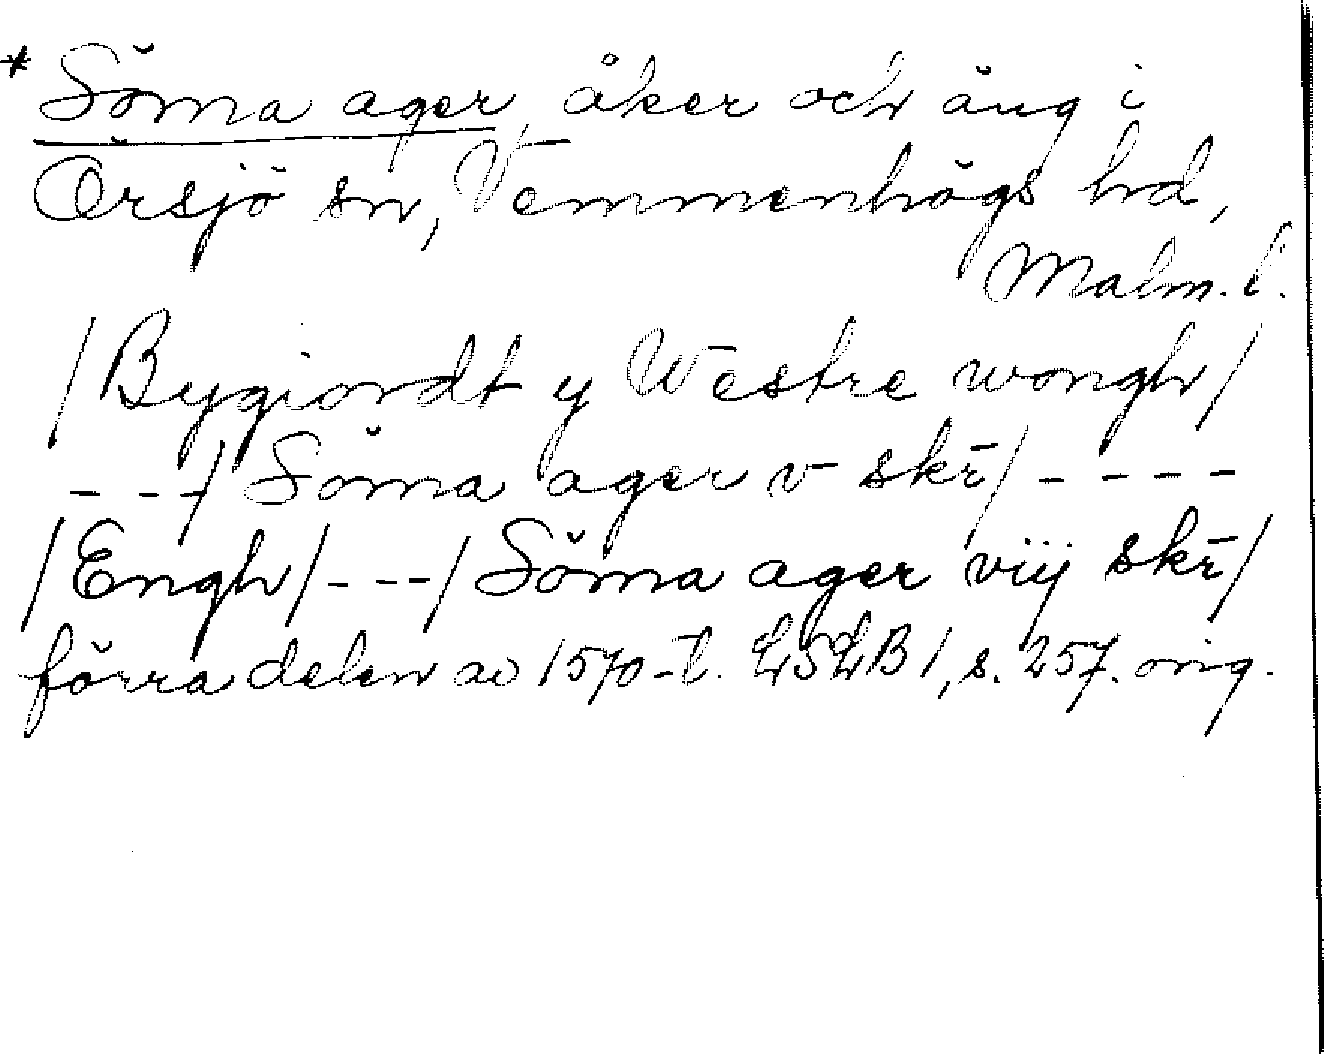 * Söma ager, åker och äng i
Örsjö sn, Vemmenhögs hd,
Malm. l.
/Bygiordt y Westre wongh/
---/Söma ager v skr̄/----
/Engh/---/Söma ager viij skr̄/
förra delen av 1570-t. LSLB 1, s. 257. orig.